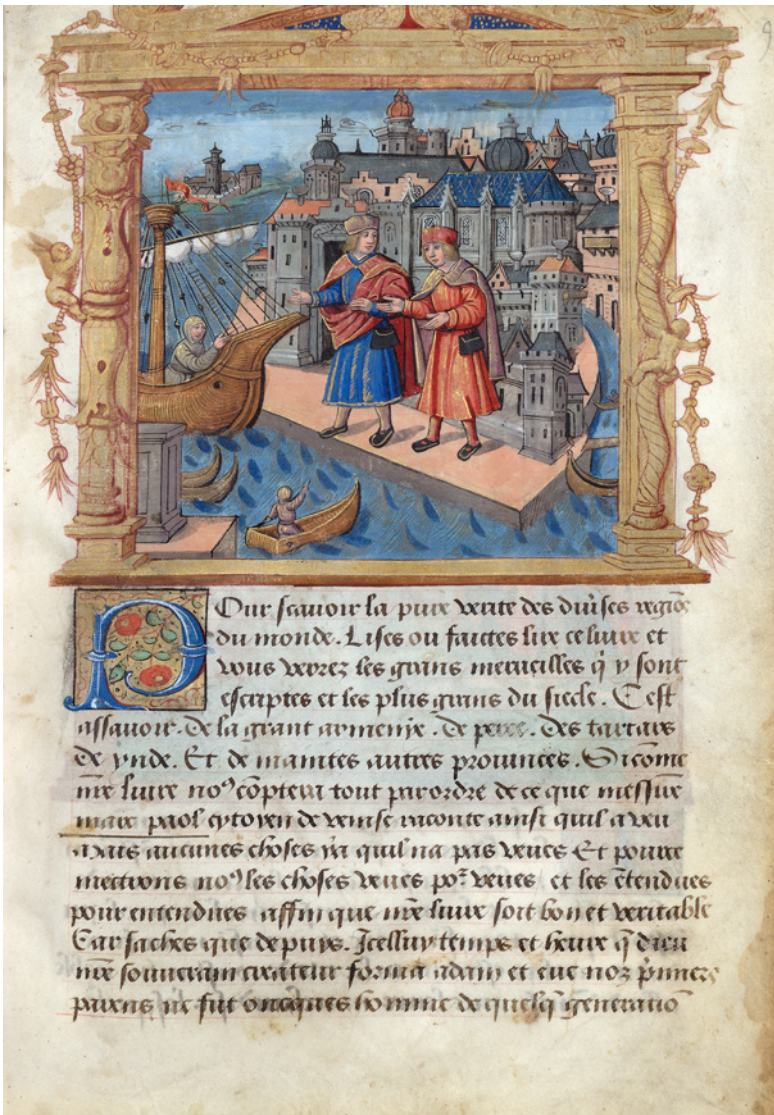 Pour scauoir la pure verite des diu̾ses regiōs
du monde. Lises ou faictes lire ce liure et
vous verrez les grans merueilles q̄ y sont
escriptes et les plus grans du siecle. C est
assauoir. De la grant armenje. De perse. Des tartars
De ynde. Et de maintes autres prouinces. Si cōme
nr̄e liure noꝰ cōptera tout par ordre de ce que messire
marc paol cytoyen de venise raconte ainsi quil a veu
Mais aucunes choses ya quil na pas veues Et pource
mectrons noꝰ les choses veues por̄ veues et les ētendues
pour entendues affin que nr̄e liure soit bon et veritable
Car saches que depuys. Jcelluy temps et heure q̄ dieu
nr̄e souuerain createur forma adam et eue noz p̄miers
parens ne fut oncques homme de quelq̄ generatiō